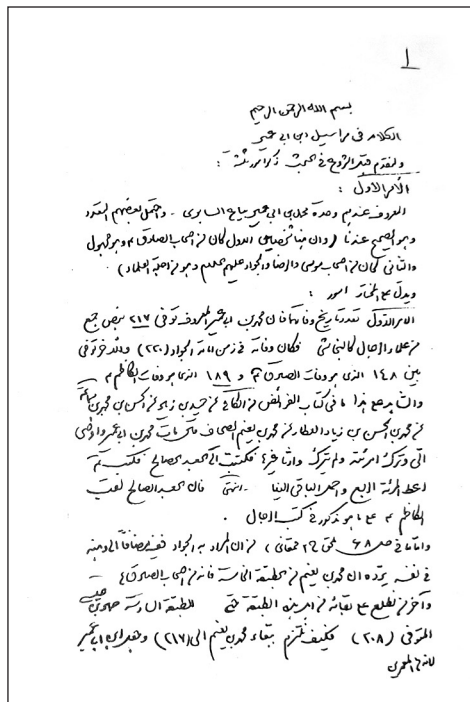 ١
بسم الله الرحمن الرحيم
الكلام فى مراسيل ابن ابى عمير
ولنقدم قبل الشروع فى البحث ذكر امور ثلثة :
الأمر الاول :
المعروف عندهم وحدة محمد بن ابى عمير بياع السابرى . واحتمل بعضهم التعدد
وهو الصحيح عندنا ( وان الاول كان من اصحاب الصادق ع وهو مجهول
والثانى كان من اصحاب موسى والرضا والجواد عليهم السلام وهو من اجلة العلماء )
ويدل على المختار امور :
الامر الاول تعدد تاريخ وفاتهما فان محمد بن ابى عمير المعروف توفى ٢١٧ بنص جمع
من علماء الرجال كالنجاشى فكان وفاته فى زمن امامة الجواد (٢٢٠) والآخر توفى
بين ١٤٨ الذى هو وفات الصادق ع و ١٨٩ الذى هو وفات الكاظم ع
والشاهد على هذا ما فى كتاب الفرائض من الكافى عن حميد بن زياد عن الحسن بن محمد بن سماعة
عن محمد بن الحسن بن زياد العطار عن محمد بن نعيم الصحاف مات محمد بن ابى عمير واوصى
الى وترك امرئته ولم يترك وارثا غيرها فكتبت الى العبد الصالح فكتب الى
اعط المرئة الربع واحمل الباقى الينا . انتهى فان العبد الصالح لقب
الكاظم ع على ما هو مذكور فى كتب الرجال .
واما ما فى ص ٦٨ من ان المراد به الجواد ففيه مضافا الى وهنه
فى نفسه يرده ان محمد بن نعيم من الطبقة الخامسة فانه من اصحاب الصادق ع
وآخر من نطلع على بقائه من اهل هذه الطبقة الطبقة السادسة حماد بن عيسى
المتوفى (٢٠٨) فكيف نلتزم ببقاء محمد بن نعيم الى (٢١٧) وهل ابن ابى عمير